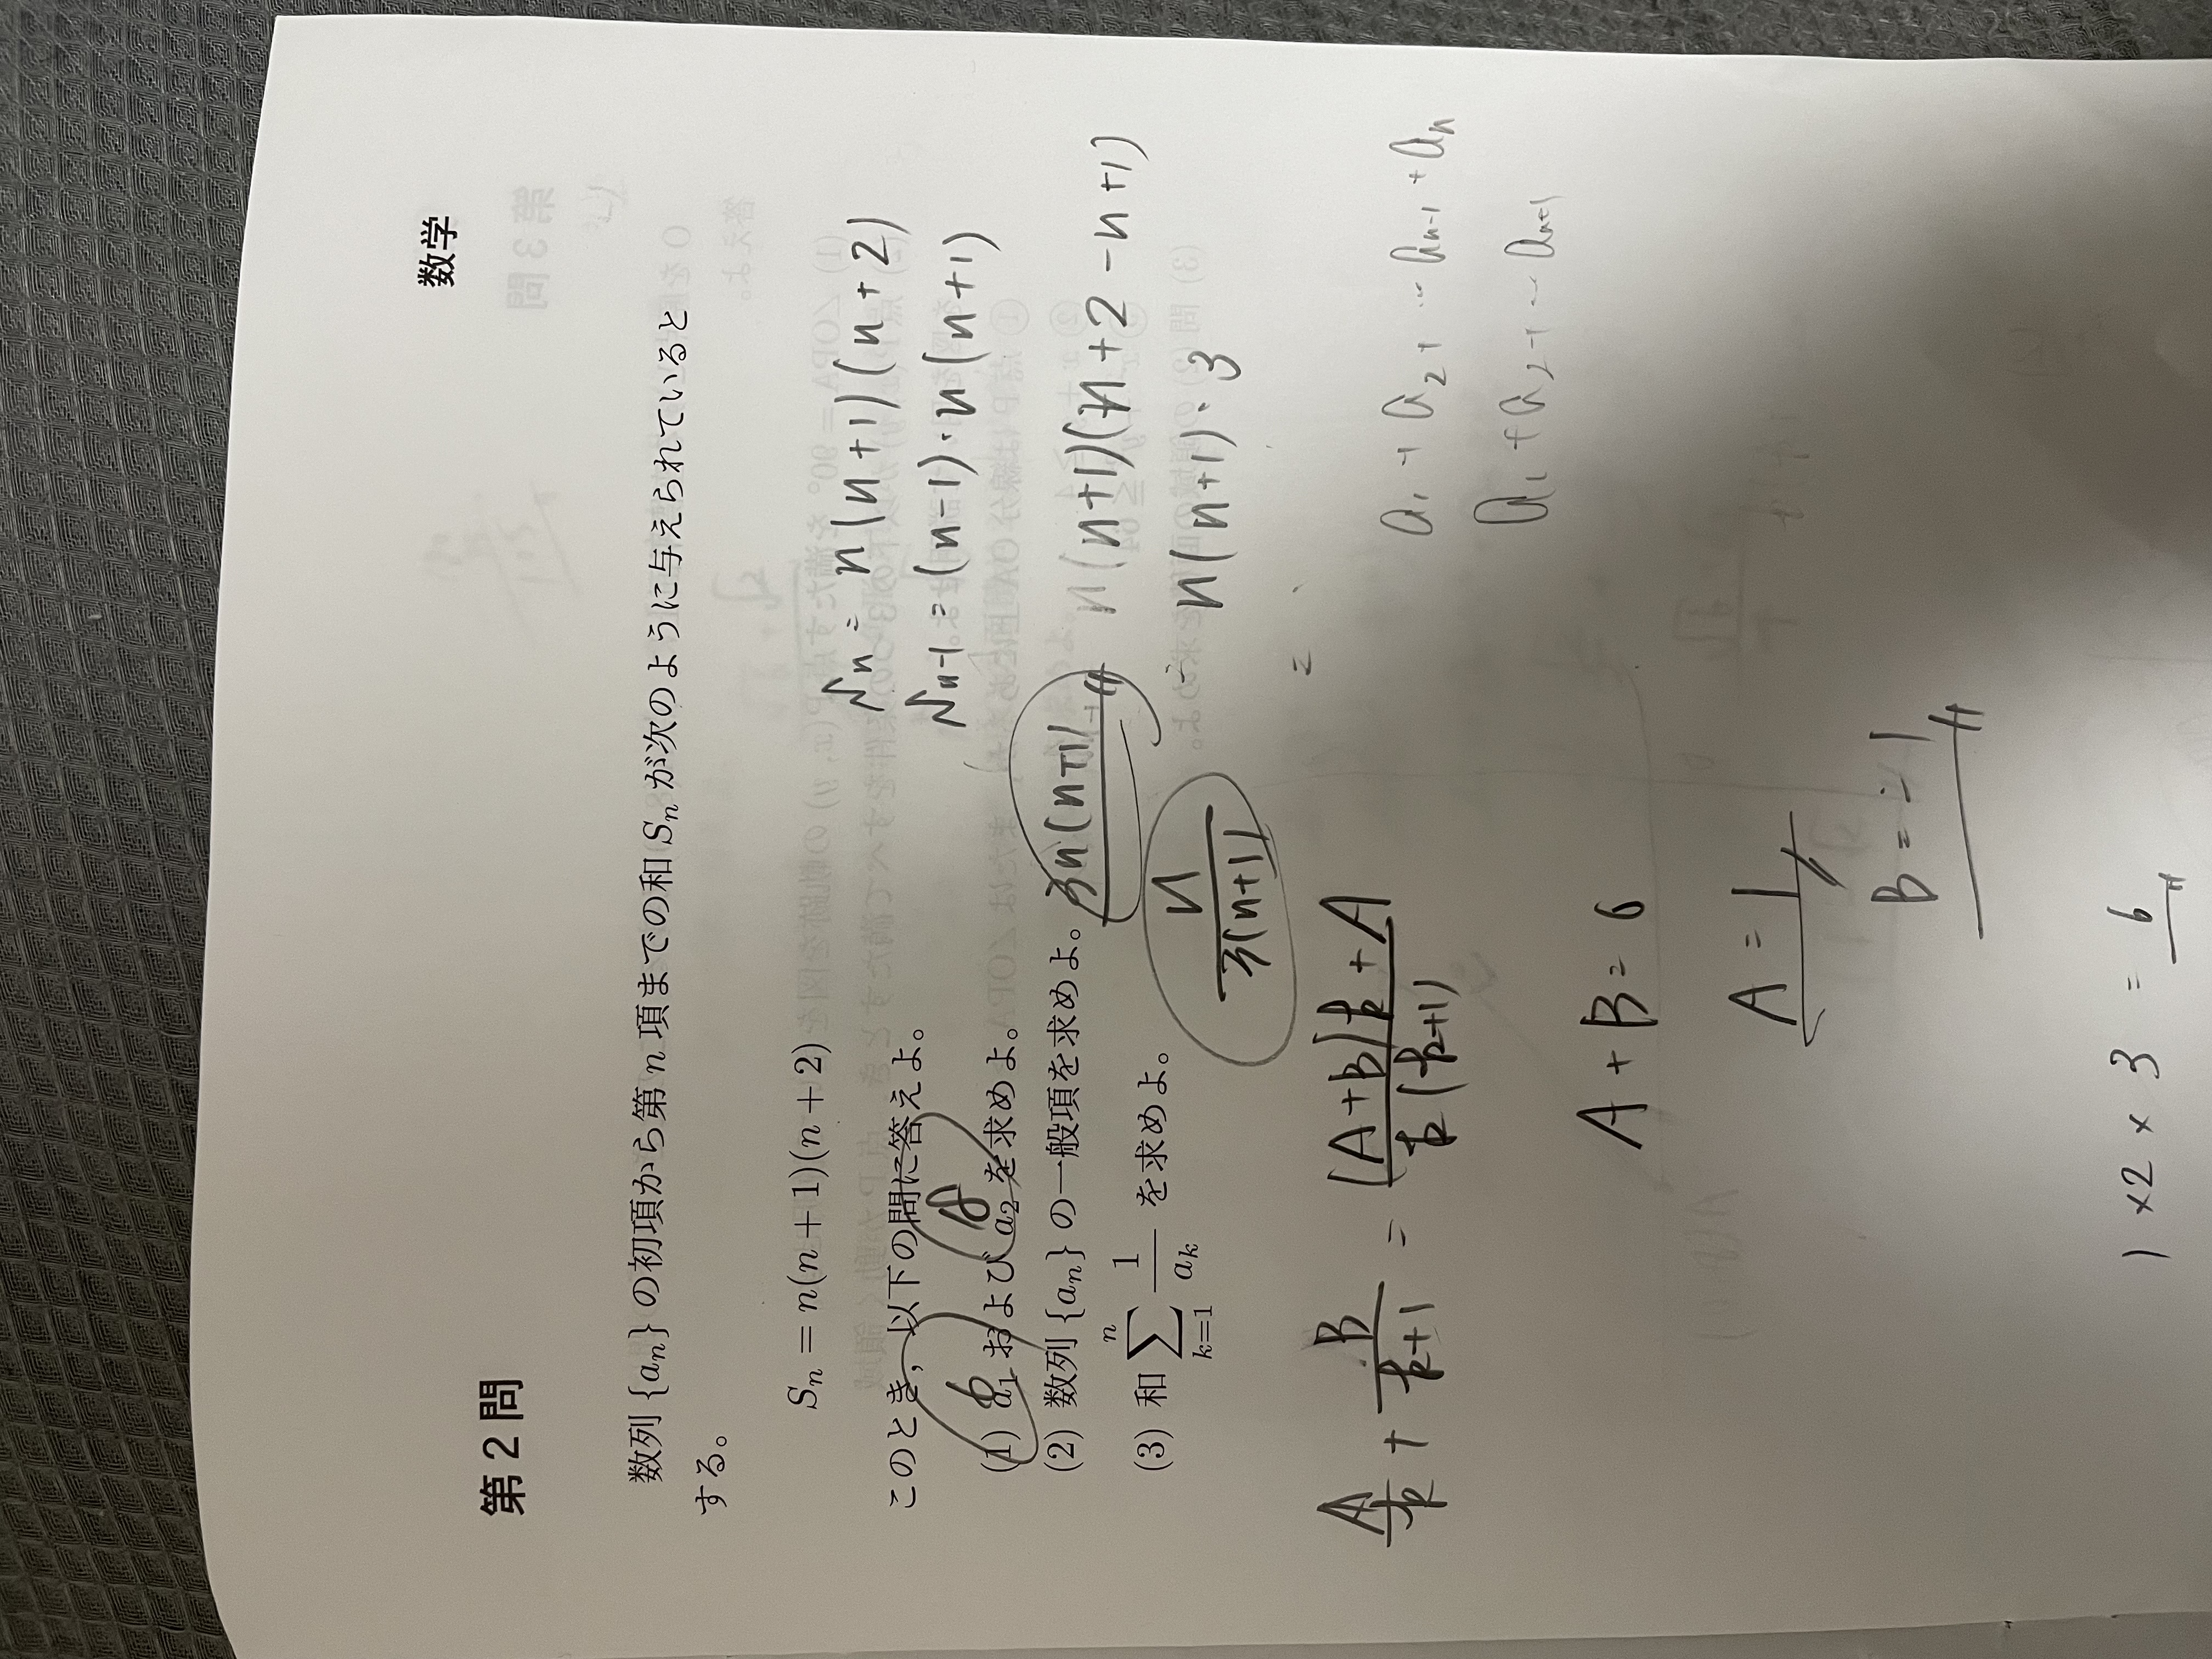 数学
第2問
数列 {aₙ} の初項から第 n 項までの和 Sₙ が次のように与えられていると
する。
Sₙ = n(n + 1)(n + 2)
Sₙ = n(n+1)(n+2)
Sₙ₋₁ = (n-1)・n(n+1)
このとき，以下の問に答えよ。
6
(1) a₁ および a₂ を求めよ。
(2) 数列 {aₙ} の一般項を求めよ。
3n(n+1)
n(n+1)(n+2-n+1)
n(n+1)・3
(3) 和 \sum_{k=1}^{n} \frac{1}{a_k} を求めよ。
\frac{n}{3(n+1)}
=
\frac{A}{k} + \frac{B}{k+1} = \frac{(A+B)k+A}{k(k+1)}
a₁ + a₂ + ‥ aₙ₋₁ + aₙ
a₁ + a₂ + ~ aₙ₊₁
A + B = 0
A = 1
B = -1
1 × 2 × 3 = 6